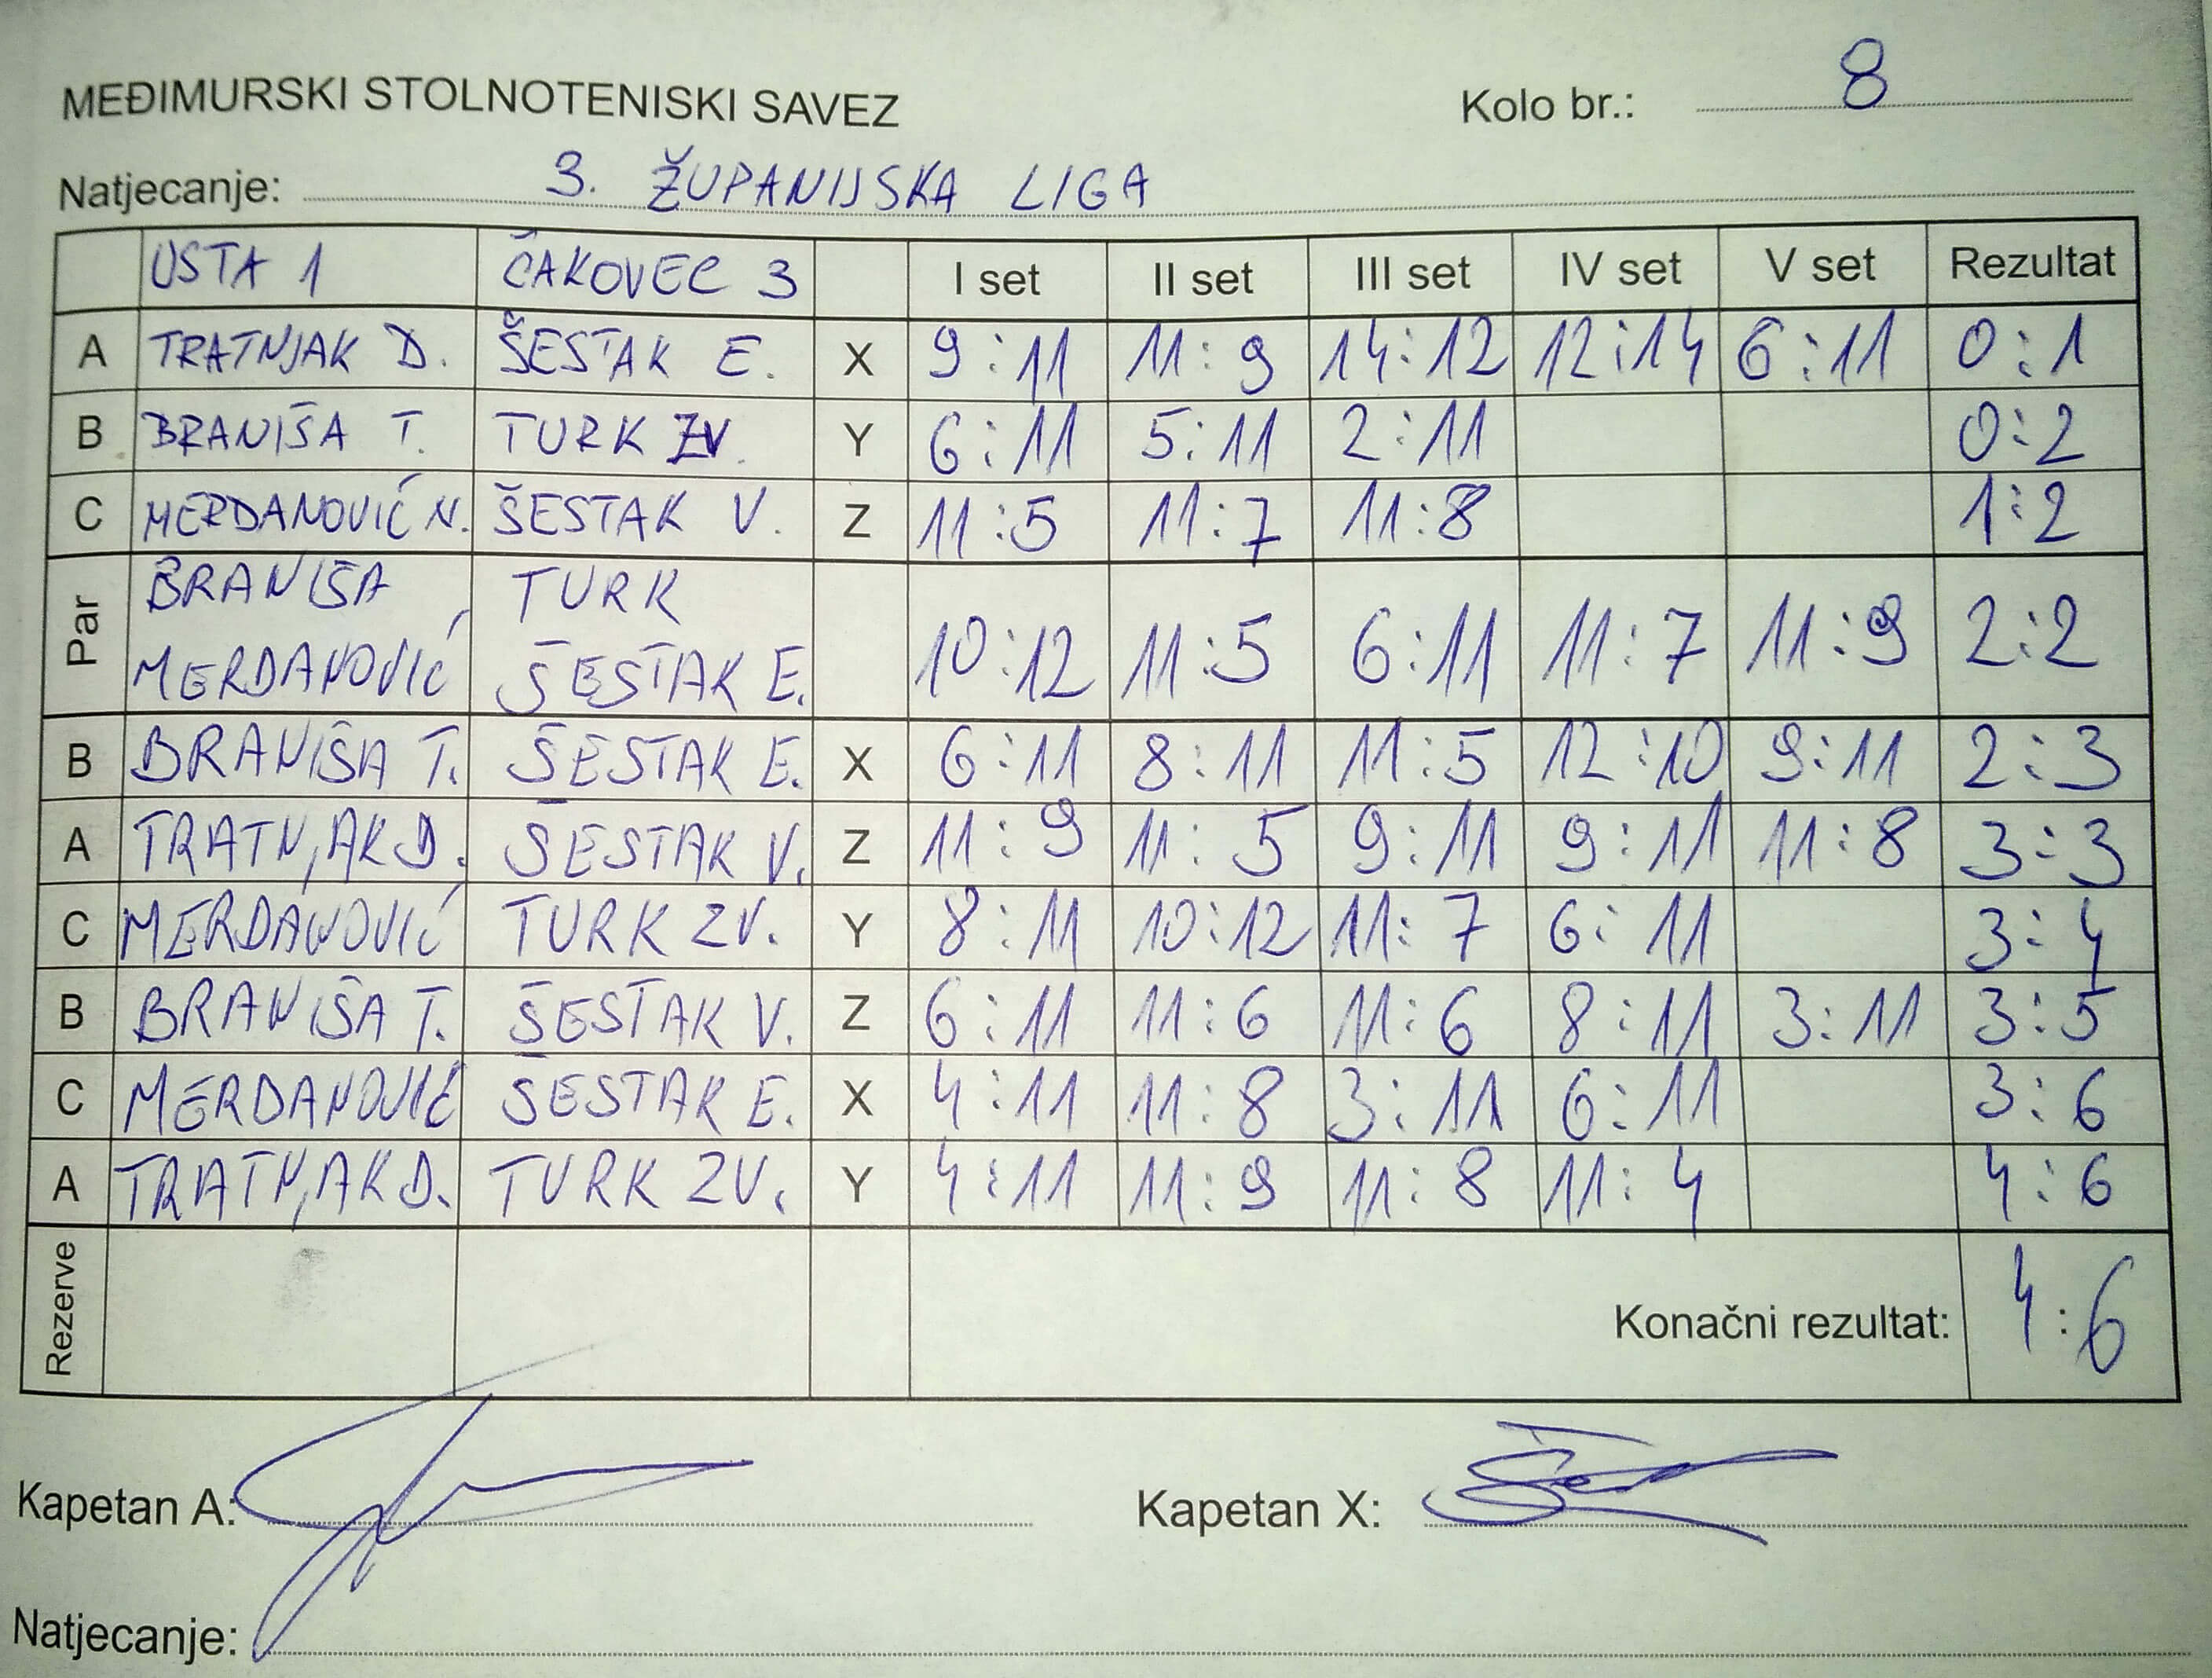 MEĐIMURSKI STOLNOTENISKI SAVEZ Kolo br.: 8
Natjecanje: 3. ŽUPANIJSKA LIGA
USTA 1 ČAKOVEC 3 I set II set III set IV set V set Rezultat
A TRATNJAK D. ŠESTAK E. X 9:11 11:9 14:12 12:14 6:11 0:1
B BRANIŠA T. TURK ZV. Y 6:11 5:11 2:11 0:2
C MERDANOVIĆ N. ŠESTAK V. Z 11:5 11:7 11:8 1:2
Par BRANIŠA, MERDANOVIĆ TURK ŠESTAK E. 10:12 11:5 6:11 11:7 11:9 2:2
B BRANIŠA T. ŠESTAK E. X 6:11 8:11 11:5 12:10 9:11 2:3
A TRATNJAK D. ŠESTAK V. Z 11:9 11:5 9:11 9:11 11:8 3:3
C MERDANOVIĆ TURK ZV. Y 8:11 10:12 11:7 6:11 3:4
B BRANIŠA T. ŠESTAK V. Z 6:11 11:6 11:6 8:11 3:11 3:5
C MERDANOVIĆ ŠESTAK E. X 4:11 11:8 3:11 6:11 3:6
A TRATNJAK D. TURK ZV. Y 4:11 11:9 11:8 11:4 4:6
Rezerve Konačni rezultat: 4:6
Kapetan A: Kapetan X:
Natjecanje: